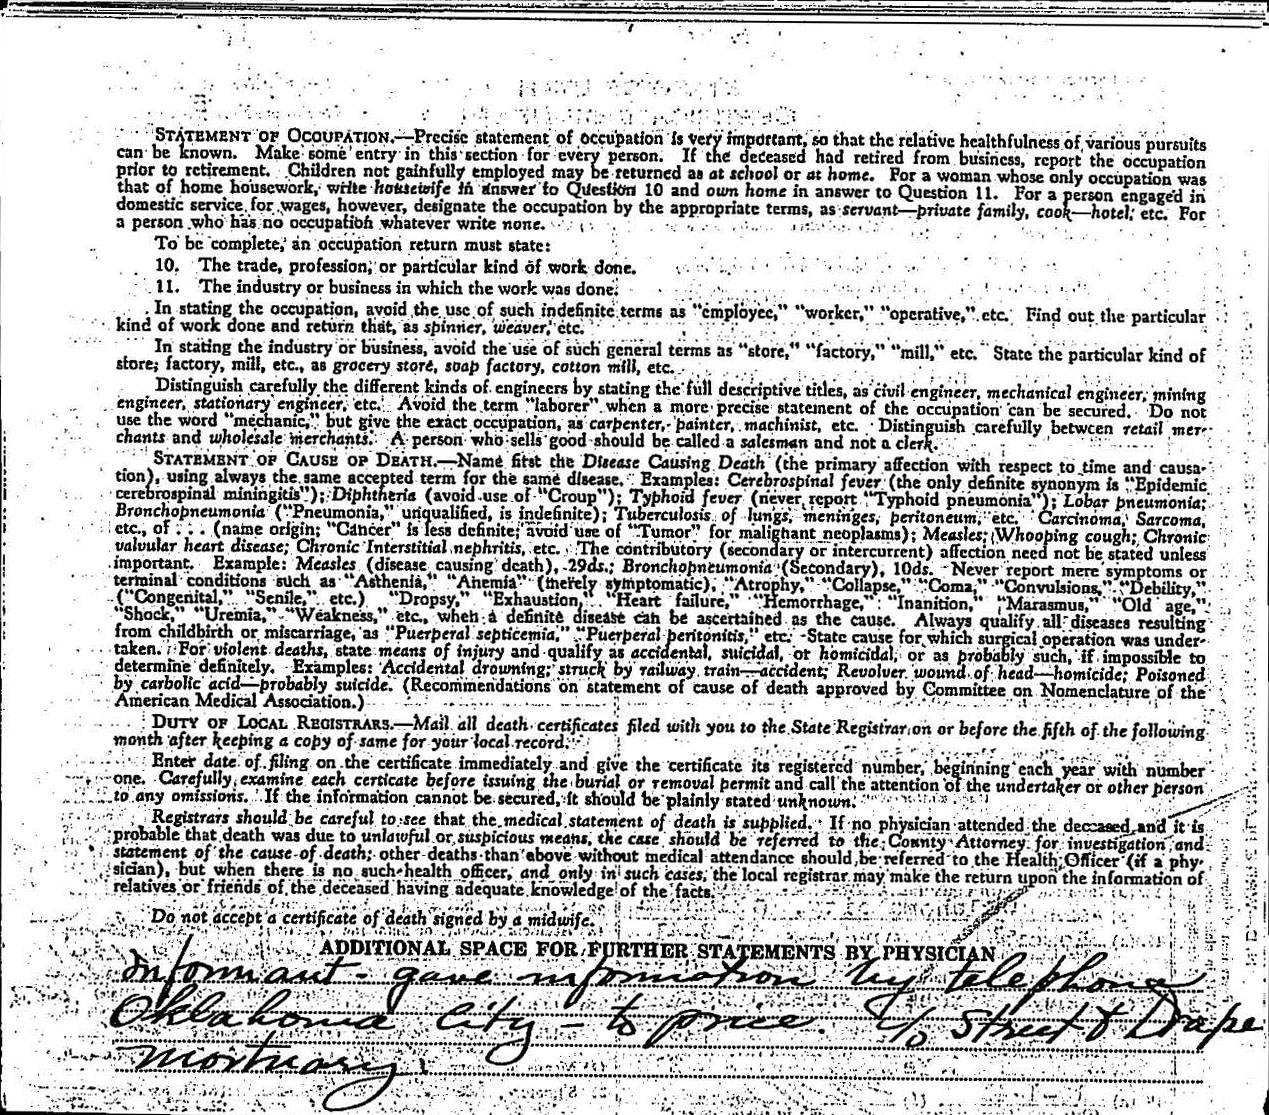 STATEMENT OF OCCUPATION.—Precise statement of occupation is very important, so that the relative healthfulness of various pursuits
can be known. Make some entry in this section for every person. If the deceased had retired from business, report the occupation
prior to retirement. Children not gainfully employed may be returned as at school or at home. For a woman whose only occupation was
that of home housework, write housewife in answer to Question 10 and own home in answer to Question 11. For a person engaged in
domestic service for wages, however, designate the occupation by the appropriate terms, as servant—private family, cook—hotel, etc. For
a person who has no occupation whatever write none.
To be complete, an occupation return must state:
10. The trade, profession, or particular kind of work done.
11. The industry or business in which the work was done.
In stating the occupation, avoid the use of such indefinite terms as "employee," "worker," "operative," etc. Find out the particular
kind of work done and return that, as spinner, weaver, etc.
In stating the industry or business, avoid the use of such general terms as "store," "factory," "mill," etc. State the particular kind of
store, factory, mill, etc., as grocery store, soap factory, cotton mill, etc.
Distinguish carefully the different kinds of engineers by stating the full descriptive titles, as civil engineer, mechanical engineer, mining
engineer, stationary engineer, etc. Avoid the term "laborer" when a more precise statement of the occupation can be secured. Do not
use the word "mechanic," but give the exact occupation, as carpenter, painter, machinist, etc. Distinguish carefully between retail mer-
chants and wholesale merchants. A person who sells good should be called a salesman and not a clerk.
STATEMENT OF CAUSE OF DEATH.—Name first the Disease Causing Death (the primary affection with respect to time and causa-
tion), using always the same accepted term for the same disease. Examples: Cerebrospinal fever (the only definite synonym is "Epidemic
cerebrospinal miningitis"); Diphtheria (avoid use of "Croup"); Typhoid fever (never report "Typhoid pneumonia"); Lobar pneumonia;
Bronchopneumonia ("Pneumonia," unqualified, is indefinite); Tuberculosis of lungs, meninges, peritoneum, etc. Carcinoma, Sarcoma,
etc., of . . . (name origin; "Cancer" is less definite; avoid use of "Tumor" for malighant neoplasms); Measles; Whooping cough; Chronic
valvular heart disease; Chronic Interstitial nephritis, etc. The contributory (secondary or intercurrent) affection need not be stated unless
important. Example: Measles (disease causing death), 29ds.; Bronchopneumonia (Secondary), 10ds. Never report mere symptoms or
terminal conditions such as "Asthenia," "Anemia" (merely symptomatic), "Atrophy," "Collapse," "Coma," "Convulsions," "Debility,"
("Congenital," "Senile," etc.) "Dropsy," "Exhaustion," "Heart failure," "Hemorrhage," "Inanition," "Marasmus," "Old age,"
"Shock," "Uremia," "Weakness," etc., when a definite disease can be ascertained as the cause. Always qualify all diseases resulting
from childbirth or miscarriage, as "Puerperal septicemia," "Puerperal peritonitis," etc. State cause for which surgical operation was under-
taken. For violent deaths, state means of injury and qualify as accidental, suicidal, or homicidal, or as probably such, if impossible to
determine definitely. Examples: Accidental drowning; struck by railway train—accident; Revolver wound of head—homicide; Poisoned
by carbolic acid—probably suicide. (Recommendations on statement of cause of death approved by Committee on Nomenclature of the
American Medical Association.)
DUTY OF LOCAL REGISTRARS.—Mail all death certificates filed with you to the State Registrar on or before the fifth of the following
month after keeping a copy of same for your local record.
Enter date of filing on the certificate immediately and give the certificate its registered number, beginning each year with number
one. Carefully examine each certicate before issuing the burial or removal permit and call the attention of the undertaker or other person
to any omissions. If the information cannot be secured, it should be plainly stated unknown.
Registrars should be careful to see that the medical statement of death is supplied. If no physician attended the deceased and it is
probable that death was due to unlawful or suspicious means, the case should be referred to the County Attorney for investigation and
statement of the cause of death; other deaths than above without medical attendance should be referred to the Health Officer (if a phy-
sician), but when there is no such health officer, and only in such cases, the local registrar may make the return upon the information of
relatives or friends of the deceased having adequate knowledge of the facts.
Do not accept a certificate of death signed by a midwife.
ADDITIONAL SPACE FOR FURTHER STATEMENTS BY PHYSICIAN
Informant - gave information by telephone
Oklahoma City - to price. c/o Street & Drape
mortuary.